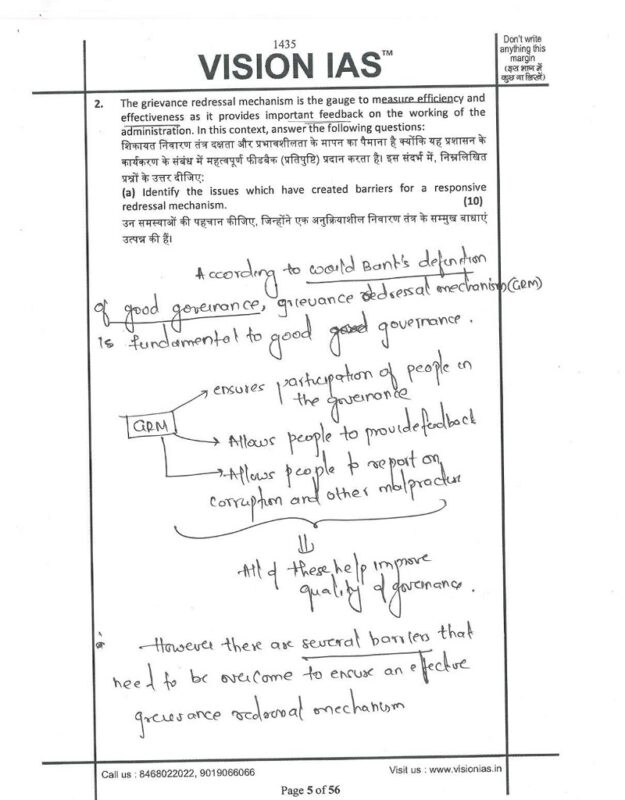 1435
VISION IAS™
Don't write
anything this
margin
(इस भाग में
कुछ ना लिखें)
2. The grievance redressal mechanism is the gauge to measure efficiency and
effectiveness as it provides important feedback on the working of the
administration. In this context, answer the following questions:
शिकायत निवारण तंत्र दक्षता और प्रभावशीलता के मापन का पैमाना है क्योंकि यह प्रशासन के
कार्यकरण के संबंध में महत्वपूर्ण फीडबैक (प्रतिपुष्टि) प्रदान करता है। इस संदर्भ में, निम्नलिखित
प्रश्नों के उत्तर दीजिए:
(a) Identify the issues which have created barriers for a responsive
redressal mechanism. (10)
उन समस्याओं की पहचान कीजिए, जिन्होंने एक अनुक्रियाशील निवारण तंत्र के सम्मुख बाधाएं
उत्पन्न की हैं।
According to would Bank's definition
of good governance, grievance redressal mechanism (GRM)
is fundamental to good good governance.
ensures participation of people in
the governance
GRM
Allows people to provide feedback
Allows people to report on
corruption and other malpractice
All of these help improve
quality of governance.
However there are several barriers that
need to be overcome to ensure an effective
grievance redressal mechanism
Call us : 8468022022, 9019066066
Visit us : www.visionias.in
Page 5 of 56